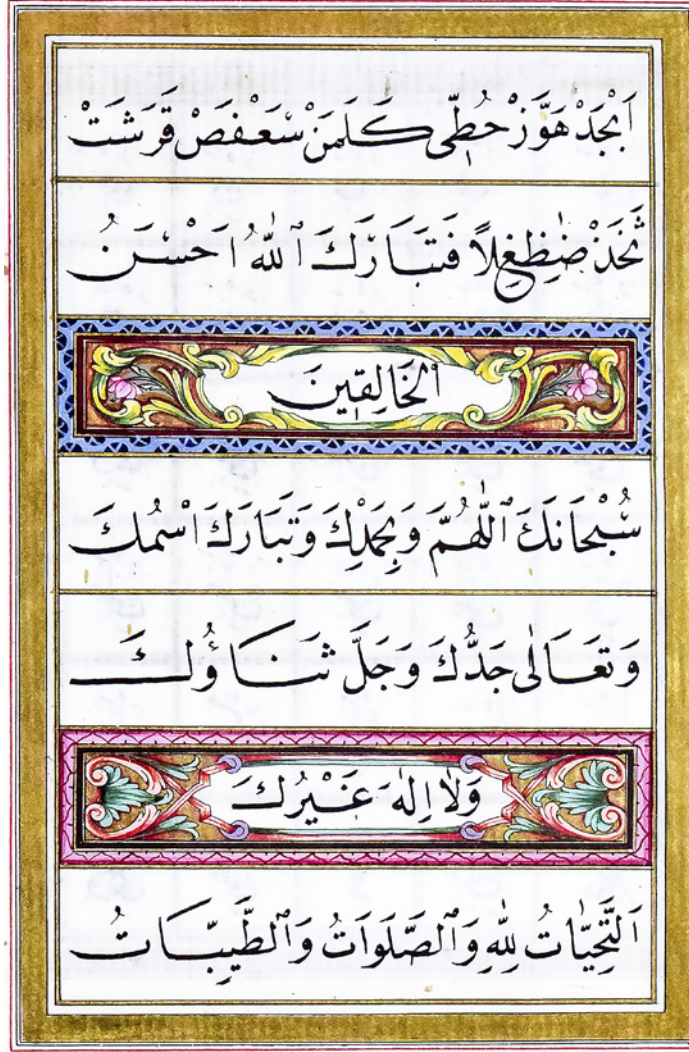 اَبْجَدْ هَوَّزْ حُطِّى كَلَمَنْ سَعْفَصْ قَرَشَتْ
ثَخَذْ ضَظِغِلاً فَتَبَارَكَ ٱللّٰهُ اَحْسَنُ
الْخَالِقٖينَ
سُبْحَانَكَ ٱللّٰهُمَّ وَبِحَمْدِكَ وَتَبَارَكَ اسْمُكَ
وَتَعَالٰى جَدُّكَ وَجَلَّ ثَنَاؤُكَ
وَلَا اِلٰهَ غَيْرُكَ
اَلتَّحِيَّاتُ لِلّٰهِ وَٱلصَّلَوَاتُ وَٱلطَّيِّبَاتُ